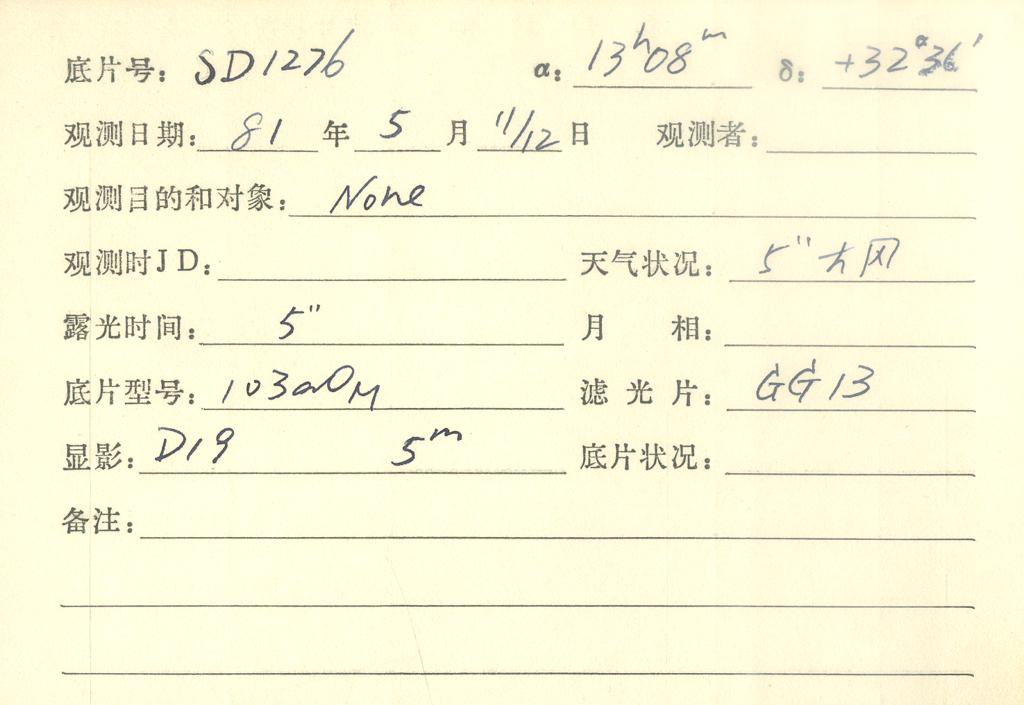 底片号: SD1276 α: 13ʰ08ᵐ δ: +32°36′
观测日期: 81 年 5 月 11/12 日 观测者:
观测目的和对象: None
观测时JD: 天气状况: 5" 大风
露光时间: 5" 月 相:
底片型号: 103aOM 滤光片: GG13
显影: D19 5ᵐ 底片状况:
备注: